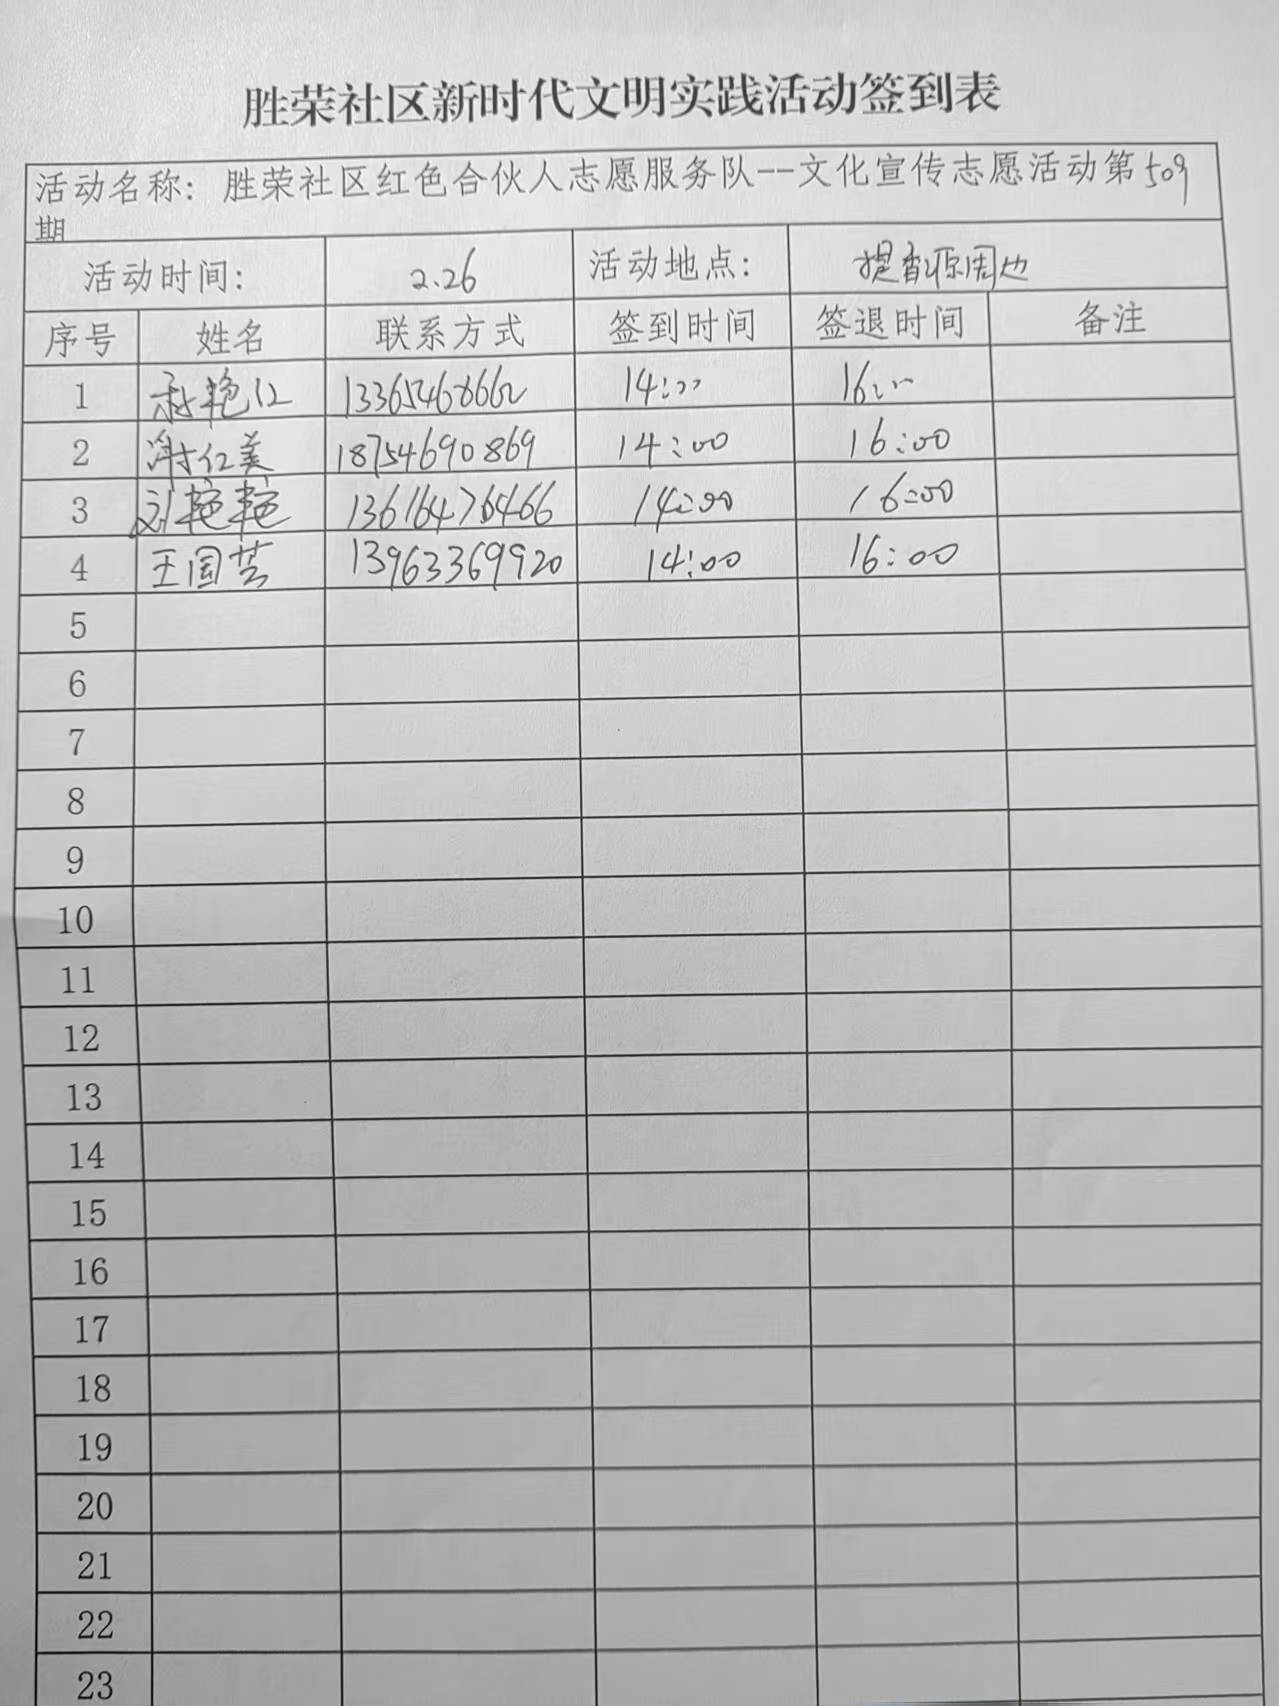 胜荣社区新时代文明实践活动签到表
活动名称：胜荣社区红色合伙人志愿服务队--文化宣传志愿活动第509
期
活动时间： 2.26 活动地点： 提香源周边
序号 姓名 联系方式 签到时间 签退时间 备注
1 艳红 13365468662 14:00 16:00
2 谢红美 18754690869 14:00 16:00
3 刘艳艳 13616476466 14:00 16:00
4 王国芸 13963369920 14:00 16:00
5
6
7
8
9
10
11
12
13
14
15
16
17
18
19
20
21
22
23